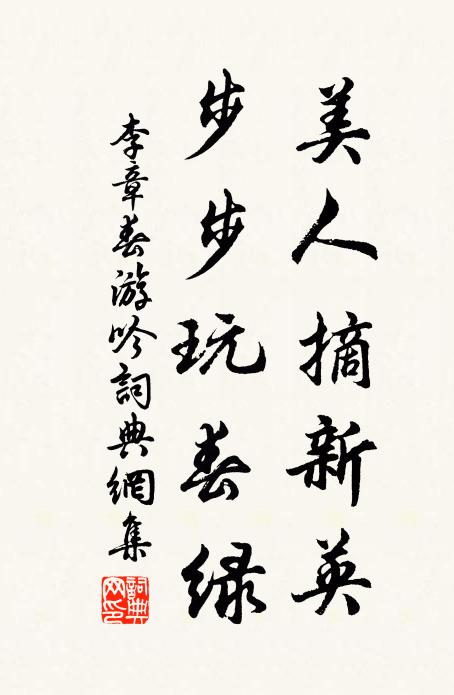 美人摘新英
步步玩春绿
李章春游吟詞典網集
詞典网印